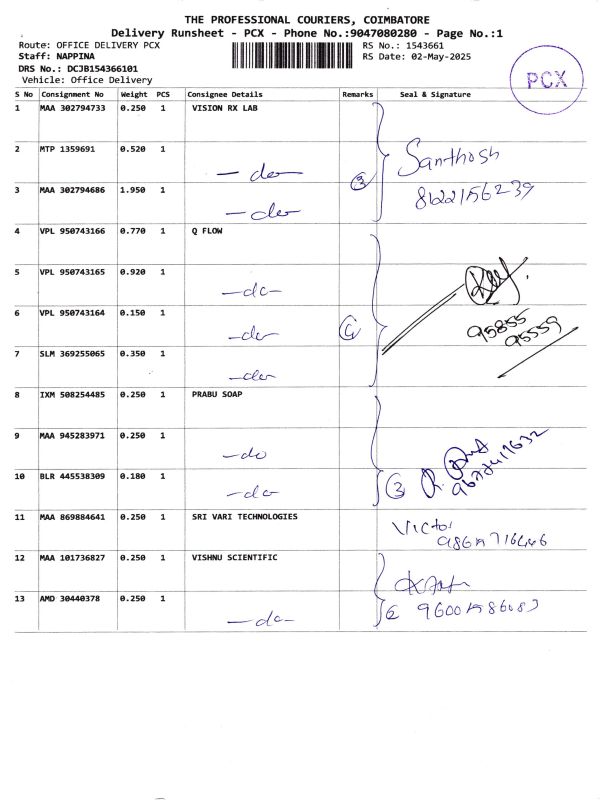 THE PROFESSIONAL COURIERS, COIMBATORE
Delivery Runsheet - PCX - Phone No.:9047080280 - Page No.:1
Route: OFFICE DELIVERY PCX
RS No.: 1543661
Staff: NAPPINA
RS Date: 02-May-2025
DRS No.: DCJB154366101
Vehicle: Office Delivery
PCX
S No Consignment No Weight PCS Consignee Details Remarks Seal & Signature
1 MAA 302794733 0.250 1 VISION RX LAB
2 MTP 1359691 0.520 1 -do-
Santhosh
3 MAA 302794686 1.950 1 -do-
③
8122156239
4 VPL 950743166 0.770 1 Q FLOW
5 VPL 950743165 0.920 1 -do-
6 VPL 950743164 0.150 1 -do-
95855
95559
7 SLM 369255065 0.350 1 -do-
8 IXM 508254485 0.250 1 PRABU SOAP
9 MAA 945283971 0.250 1 -do
10 BLR 445538309 0.180 1 -do-
③
11 MAA 869884641 0.250 1 SRI VARI TECHNOLOGIES
Victor
12 MAA 101736827 0.250 1 VISHNU SCIENTIFIC
13 AMD 30440378 0.250 1 -do-